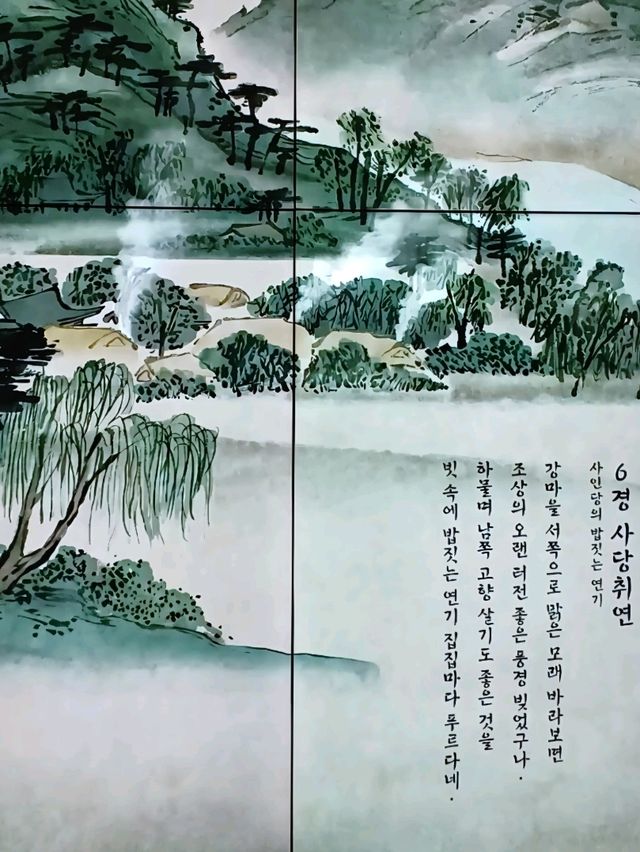 6경 사당취연
사인당의 밥짓는 연기
강마을 서쪽으로 맑은 모래 바라보면
조상의 오랜 터전 좋은 풍경 빚었구나.
하물며 남쪽 고향 살기도 좋은 것을
빗속에 밥짓는 연기 집집마다 푸르다네.